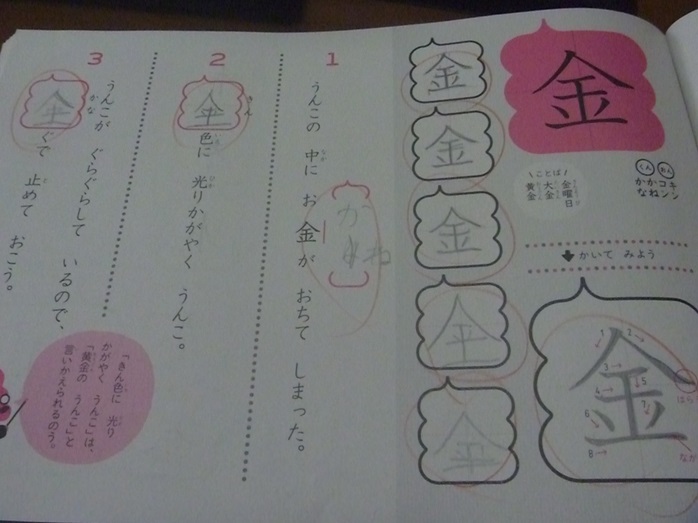 金
おん
コン
キン
くん
かね
かな
ことば
金曜日
きんようび
大金
たいきん
黄金
おうごん
かいて みよう
金
1
2
3
4
5
6
7
8
はら
なが
金
金
金
金
金
1
うんこの 中に お金が おちて しまった。
なか
かね
2
金色に 光りかがやく うんこ。
きん
いろ
ひか
3
うんこが ぐらぐらして いるので、
金ぐで 止めて おこう。
かな
と
「きん色に 光り
かがやく うんこ」は、
「黄金の うんこ」と
言いかえられるのう。